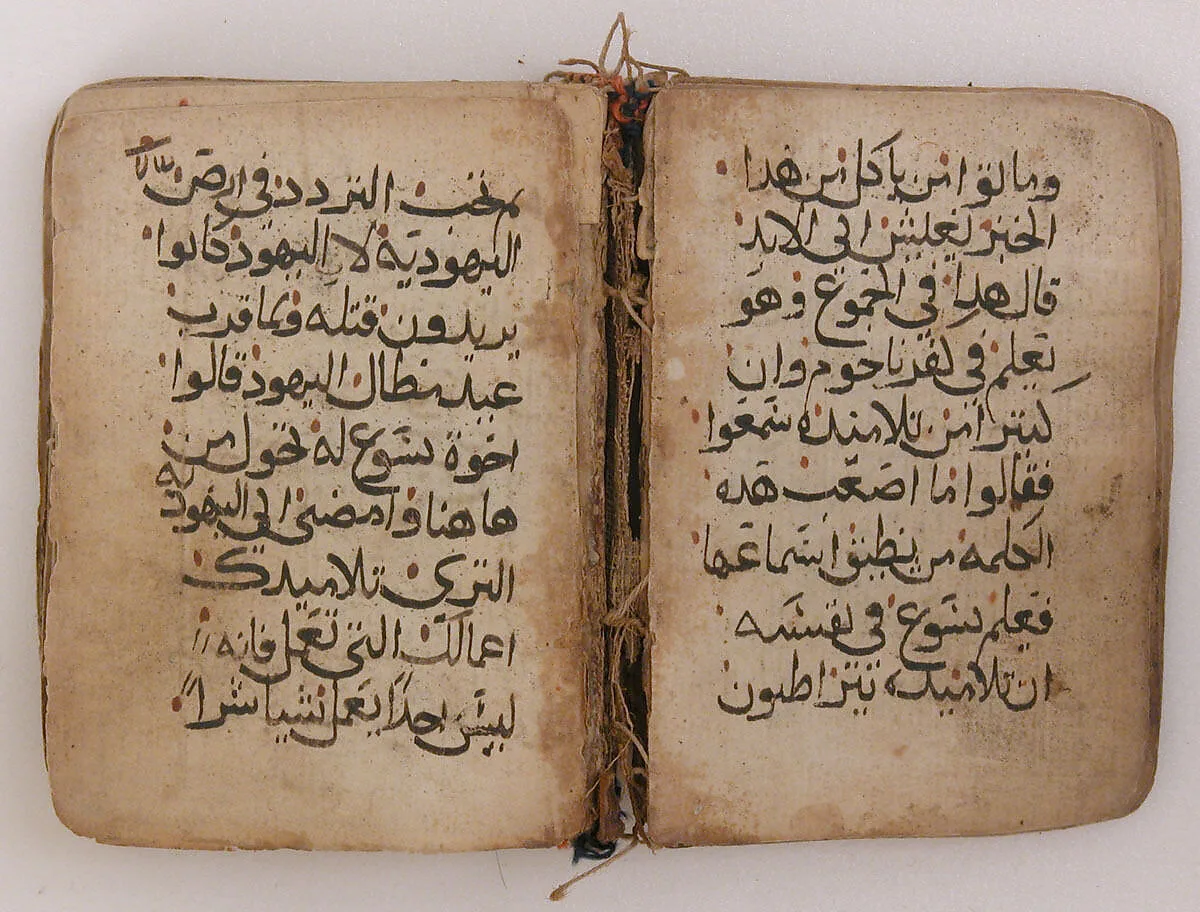 وماتوا من ياكل من هدا
الخبز يعيش الى الابد
قال هدا في الجموع وهو
يعلم في كفرناحوم وان
كثيرا من تلاميده سمعوا
فقالوا ما اصعب هده
الكلمه من يطيق استماعها
فعلم يسوع في نفسه
ان تلاميده يتراطنون
يحب التردد في ارض
اليهودية لان اليهود كانوا
يريدون قتله ولما قرب
عيد مظال اليهود قالوا
اخوة يسوع له تحول من
هاهنا وامضى الى اليهوديه
لترى تلاميدك
اعمالك التى تعمل فانه
ليس احدًا يعمل شيا سًرا